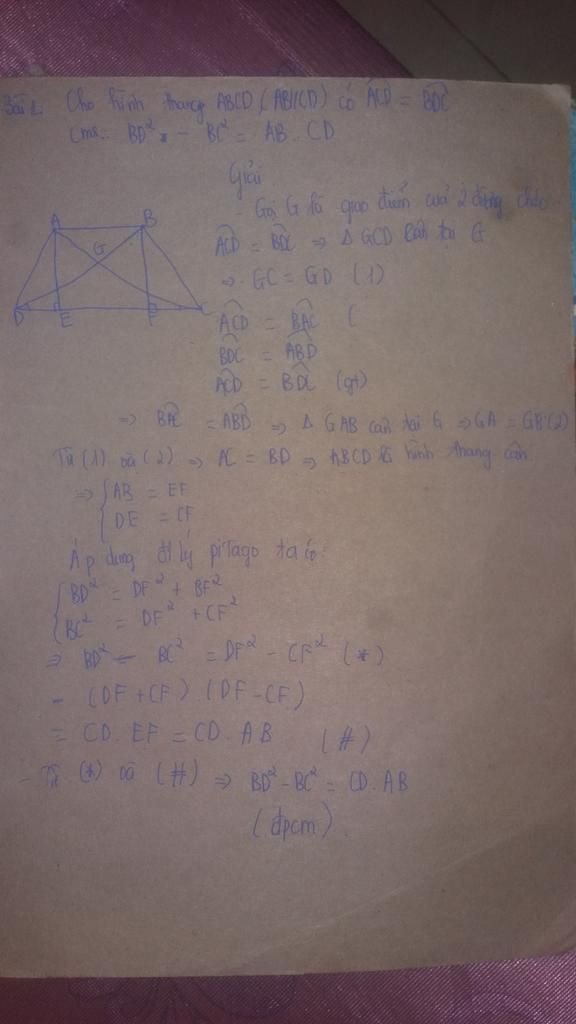 Bài 1: Cho hình thang ABCD (AB//CD) có ACD = BDC
Cmr: BD² - BC² = AB . CD
Giải
- Gọi G là giao điểm của 2 đường chéo
ACD = BDC => Δ GCD cân tại G
=> GC = GD (1)
ACD = BAC (
BDC = ABD
ACD = BDC (gt)
=> BAC = ABD => Δ GAB cân tại G => GA = GB (2)
Từ (1) và (2) => AC = BD => ABCD là hình thang cân
=> { AB = EF
DE = CF
Áp dụng đl lý piTago ta có:
{ BD² = DF² + BF²
BC² = DF² + CF²
=> BD² - BC² = DF² - CF² (*)
= (DF + CF) . (DF - CF)
= CD . EF = CD . AB (#)
- Từ (*) và (#) => BD² - BC² = CD . AB
(đpcm).
A
B
G
D
E
F
C